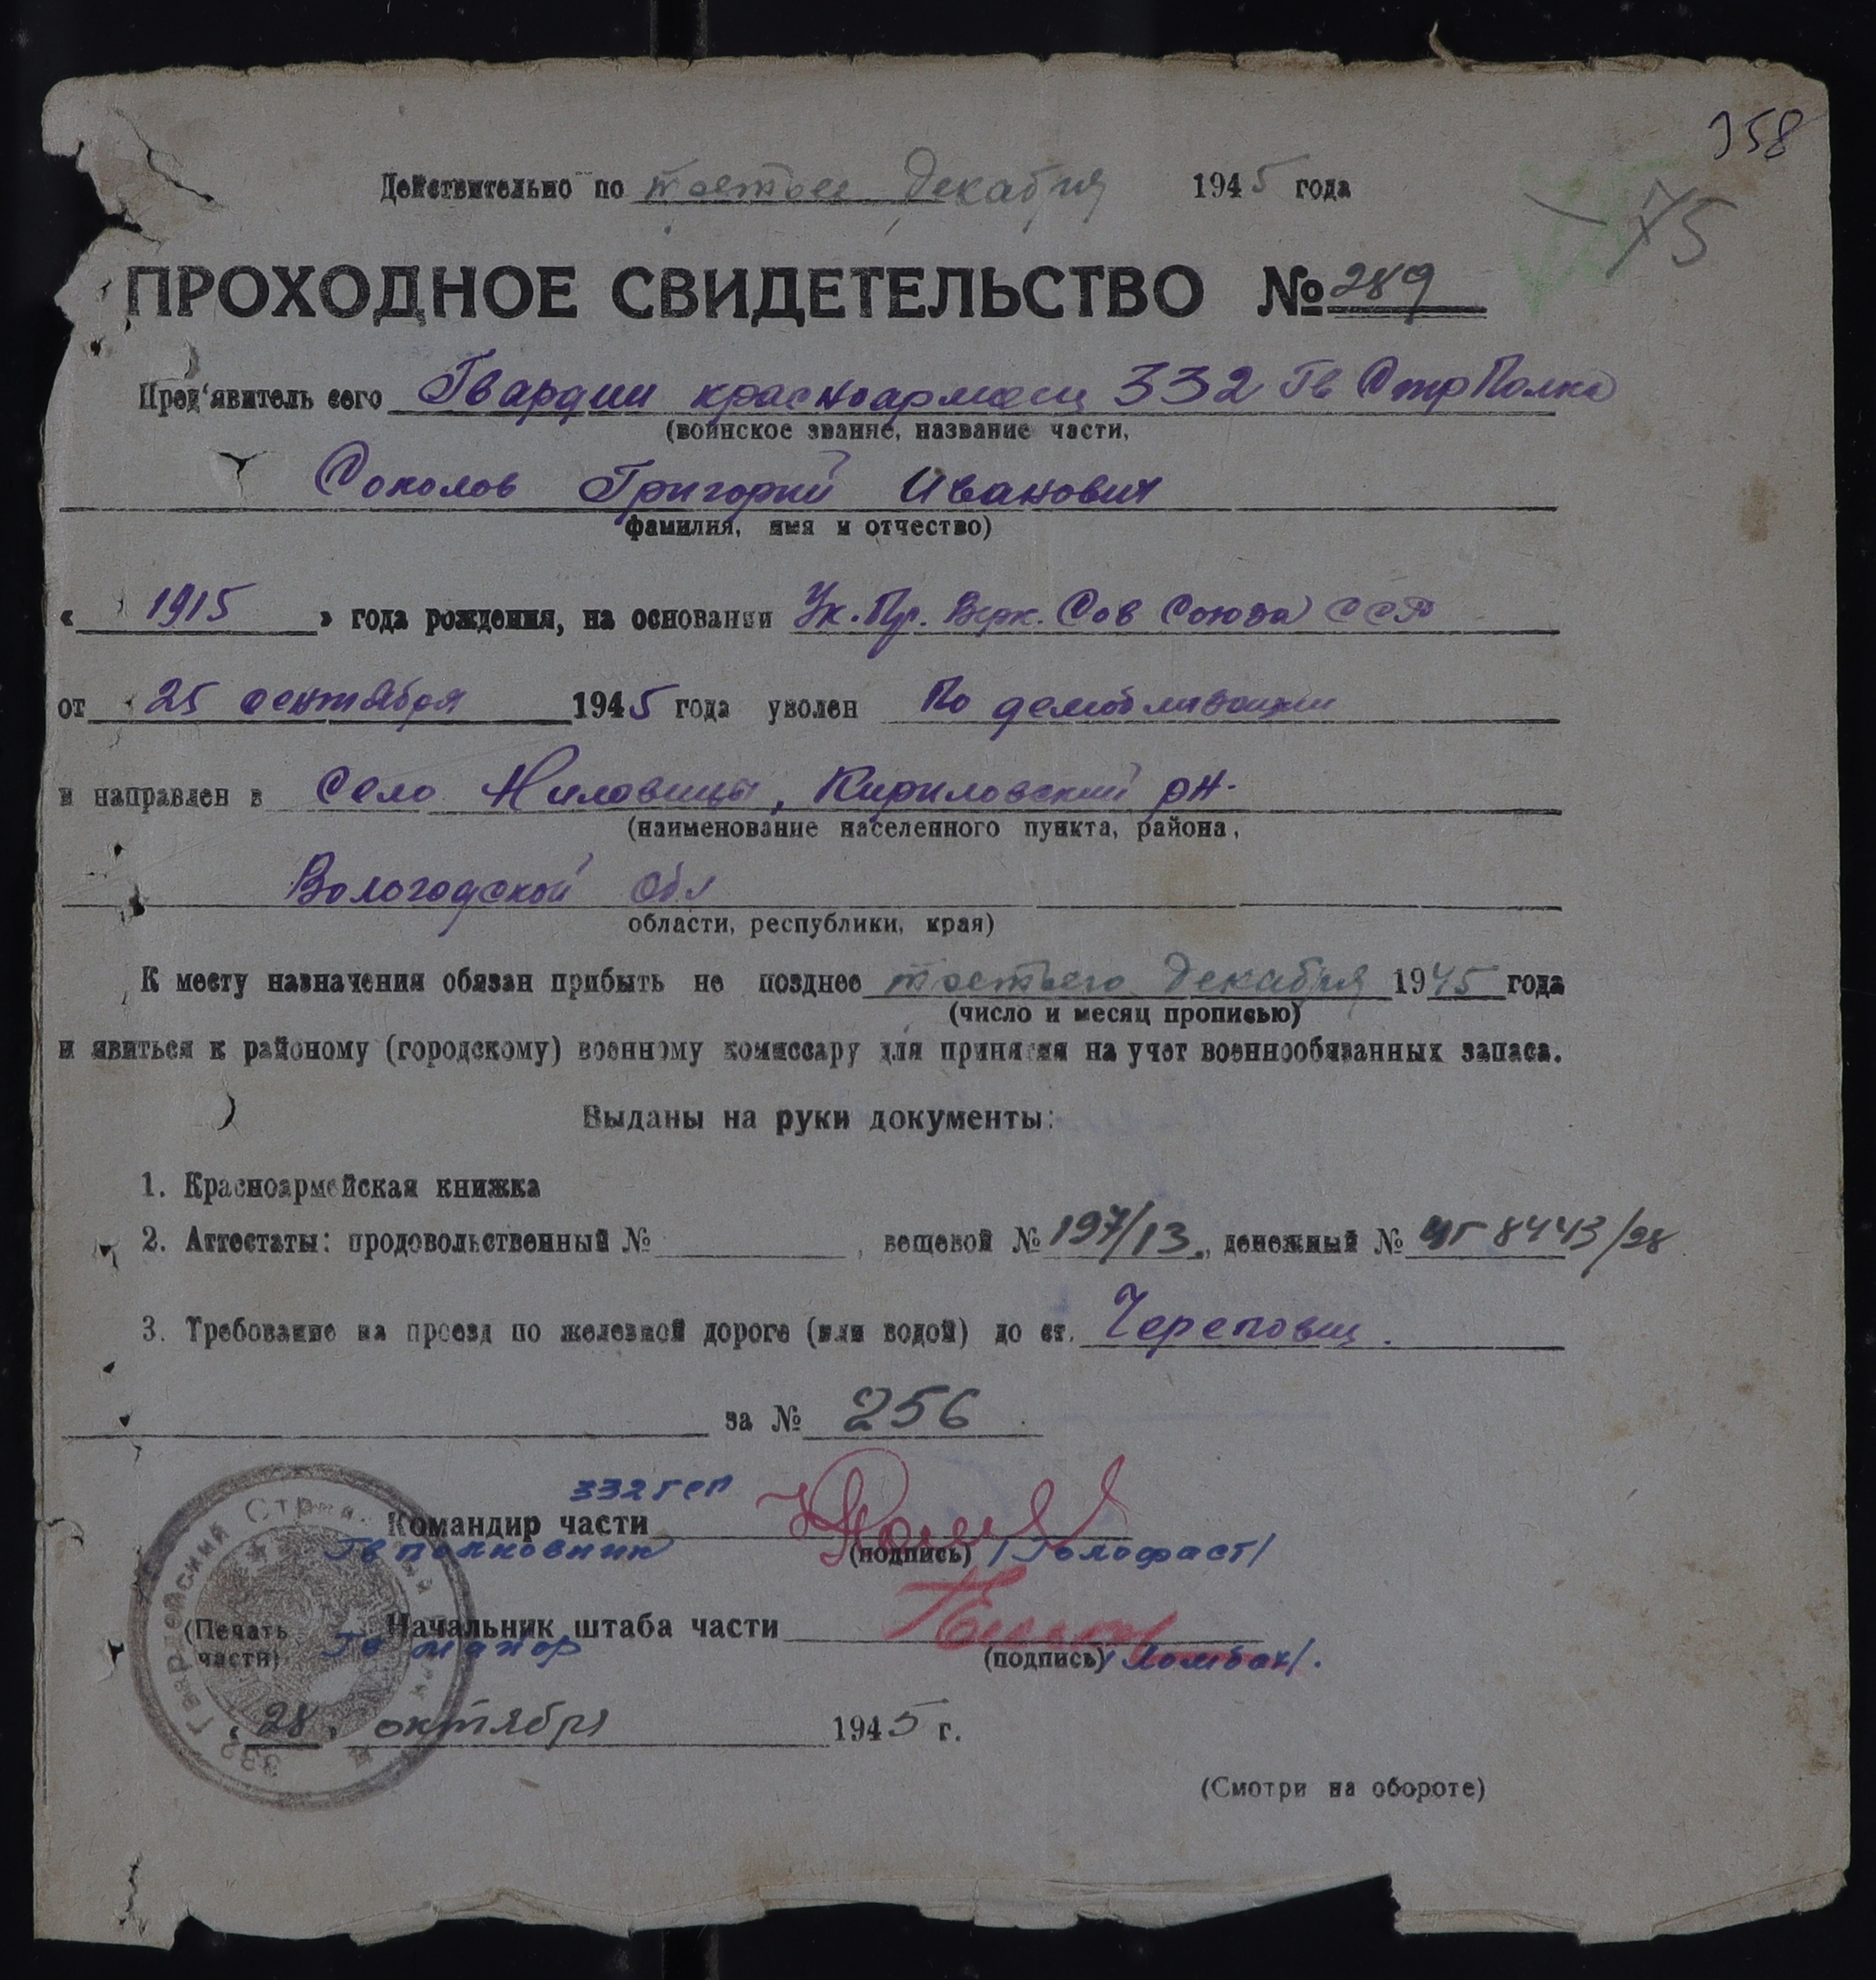 358
Действительно по третье декабря 1945 года
75
ПРОХОДНОЕ СВИДЕТЕЛЬСТВО № 289
Пред'явитель сего Гвардии красноармеец 332 Гв Стр Полка
(воинское звание, название части,
Соколов Григорий Иванович
фамилия, имя и отчество)
« 1915 » года рождения, на основании Ук. Пр. Верх. Сов Союза ССР
от 25 сентября 1945 года уволен По демобилизации
и направлен в Село Ниловицы, Кириловский рн.
(наименование населенного пункта, района,
Вологодской обл
области, республики, края)
К месту назначения обязан прибыть не позднее третьего декабря 1945 года
(число и месяц прописью)
и явиться к районому (городскому) военному комиссару для принятия на учет военнообязанных запаса.
Выданы на руки документы:
1. Красноармейская книжка
2. Аттестаты: продовольственный № , вещевой № 197/13, денежный № 8443/28
3. Требование на проезд по железной дороге (или водой) до ст. Череповец.
за № 256
332 гсп
Командир части
Гв полковник (подпись) /Голофаст/
(Печать части) Начальник штаба части
Гв майор (подпись) /Ломбак/.
«28» октября 1945 г.
332 Гвардейский Стрелковый
(Смотри на обороте)